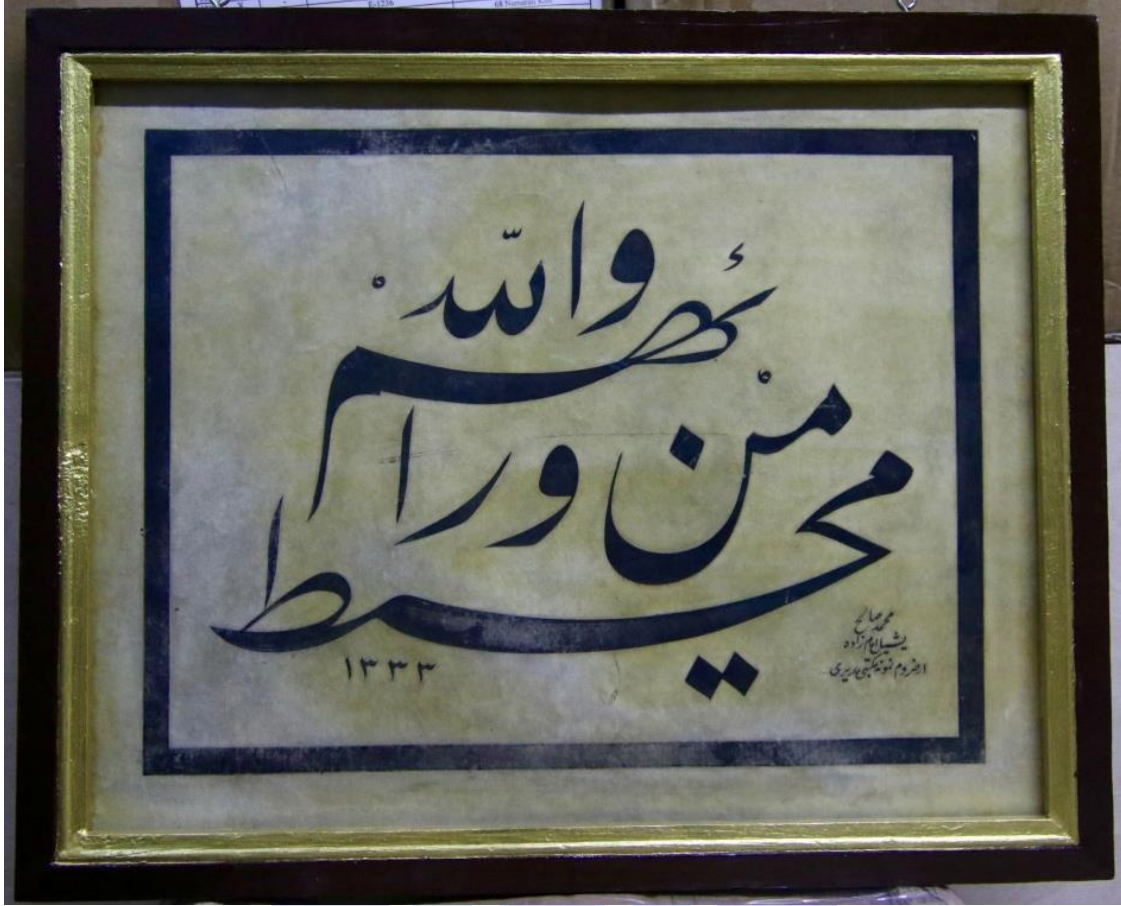 E-1236
والله
من ورائهم
محيط
١٣٣٣
محمد صالح
يشيل امام زاده
ارضروم نمونه مكتبی مديری